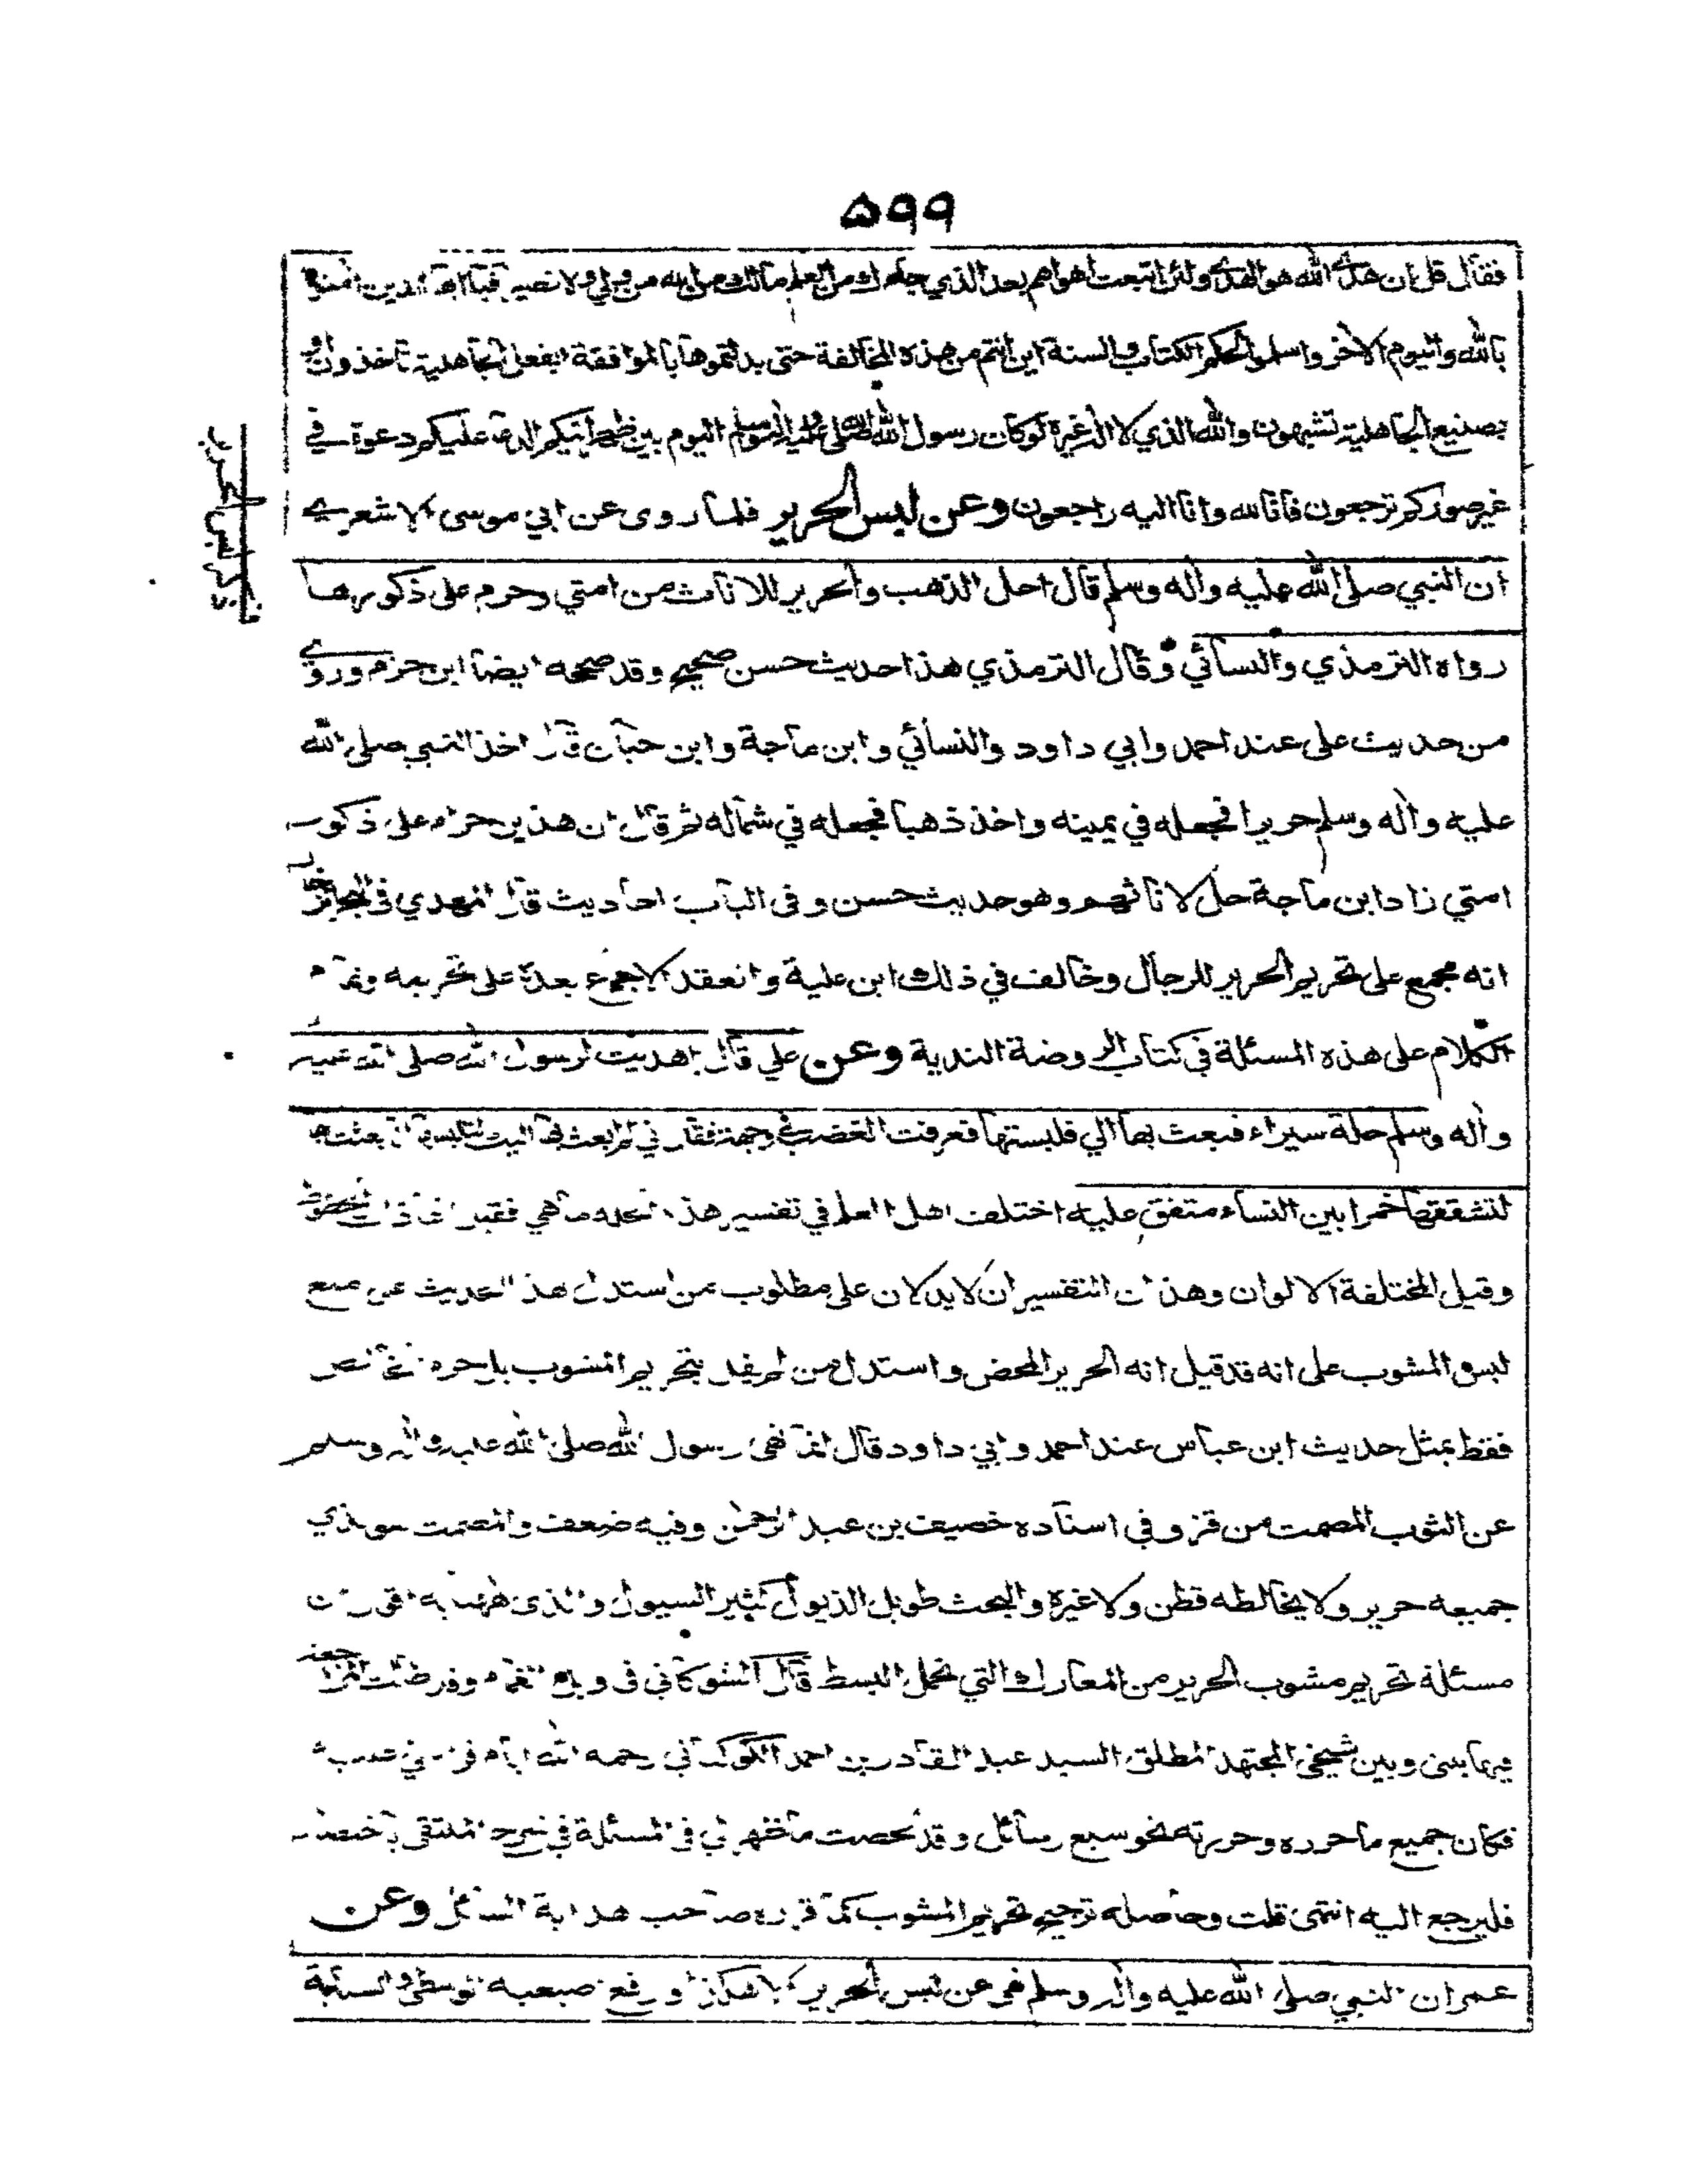 ۵۹۹
فقال قل ان هدى الله هو الهدى ولئن اتبعت اهواءهم بعد الذي جاءك من العلم مالك من الله من ولي ولا نصير فيا ايها الذين امنوا
بالله واليوم الاخر واسلموا لحكم الكتاب والسنة اين انتم من هذه المخالفة حتى بدلتموها بالموافقة ابفعل الجاهلية تاخذون او
بصنيع الجاهلية تشبهون والله الذي لا اله غيره لو كان رسول الله صلى الله عليه واله وسلم اليوم بين ظهرانيكم لدعا عليكم دعوة في
غير صوركم ترجعون فانا لله وانا اليه راجعون وعن لبس الحرير فلما روى عن ابي موسى الاشعرى
ان النبي صلى الله عليه وأله وسلم قال احل الذهب والحرير للاناث من امتي وحرم على ذكورها
رواه الترمذي والنسائي وقال الترمذي هذا حديث حسن صحيح وقد صححه ايضا ابن حزم وروى
من حديث على عند احمد وابي داود والنسائي وابن ماجة وابن حبان قال اخذ النبي صلى الله
عليه وأله وسلم حريرا فجعله في يمينه واخذ ذهبا فجعله في شماله ثم قال ان هذين حرام على ذكور
امتي زاد ابن ماجة حل لاناثهم وهو حديث حسن وفى الباب احاديث قال المهدي فى البحر
انه مجمع على تحريم الحرير للرجال وخالف في ذلك ابن علية وانعقد الاجماع بعده على تحريمه وتمام
الكلام على هذه المسئلة في كتاب الروضة الندية وعن علي قال اهديت لرسول الله صلى الله عليه
وأله وسلم حلة سيراء فبعث بها الي فلبستها فعرفت الغضب في وجهه فقال اني لم ابعث بها اليك لتلبسها انما بعثت بها
لتشققها خمرا بين النساء متفق عليه اختلف اهل العلم في تفسير هذه الحلة ما هي فقيل انها ذات الخطوط
وقيل المختلفة الالوان وهذان التفسيران لا يدلان على مطلوب من استدل بهذا الحديث على منع
لبس المشوب على انه قد قيل انه الحرير المحض واستدل من لم يقل بتحريم المشوب بل حرم الخالص
فقط بمثل حديث ابن عباس عند احمد وابي داود قال انما نهى رسول الله صلى الله عليه واله وسلم
عن الثوب المصمت من قز وفى اسناده خصيف بن عبد الرحمن وفيه ضعف والمصمت هو الذي
جميعه حرير ولا يخالطه قطن ولا غيره والبحث طويل الذيول كثير السيول والذى ههنا به اقول ان
مسئلة تحريم مشوب الحرير من المعارك التي تحمل البسط قال الشوكاني فى وبل الغمام وقد طالت المراجعة
فيها بينى وبين شيخى المجتهد المطلق السيد عبد القادر بن احمد الكوكباني رحمه الله ايام
فكان جميع ما حرره وحررته نحو سبع رسائل وقد لخصت ما ظهر لي فى المسئلة في شرح المنتقى
فليرجع اليه انتهى قلت وحاصله ترجيح تحريم المشوب كما قرره صاحب هداية السائل وعن
عمر ان النبي صلى الله عليه واله وسلم نهى عن لبس الحرير الا هكذا ورفع اصبعيه الوسطى والسبابة
ذكر لبس الحرير